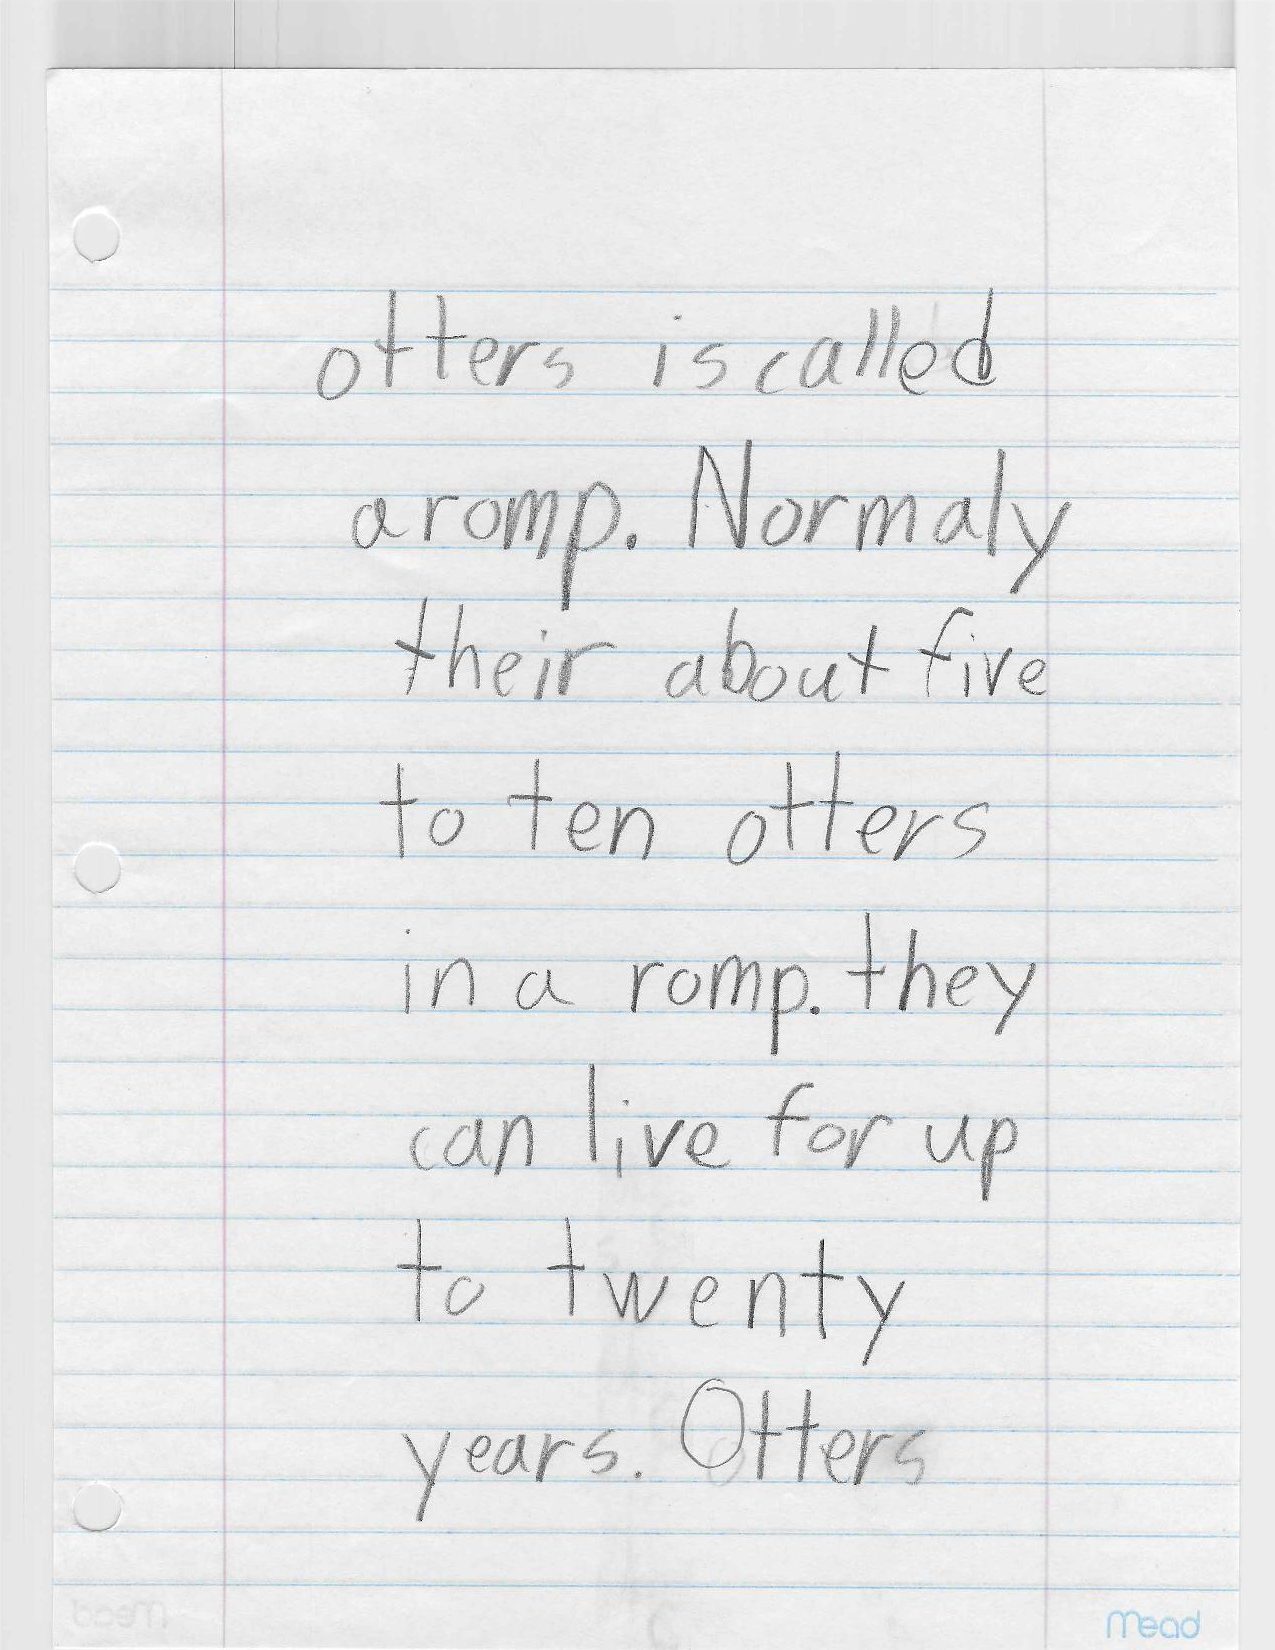 otters is called
a romp. Normaly
their about five
to ten otters
in a romp. they
can live for up
to twenty
years. Otters
Mead